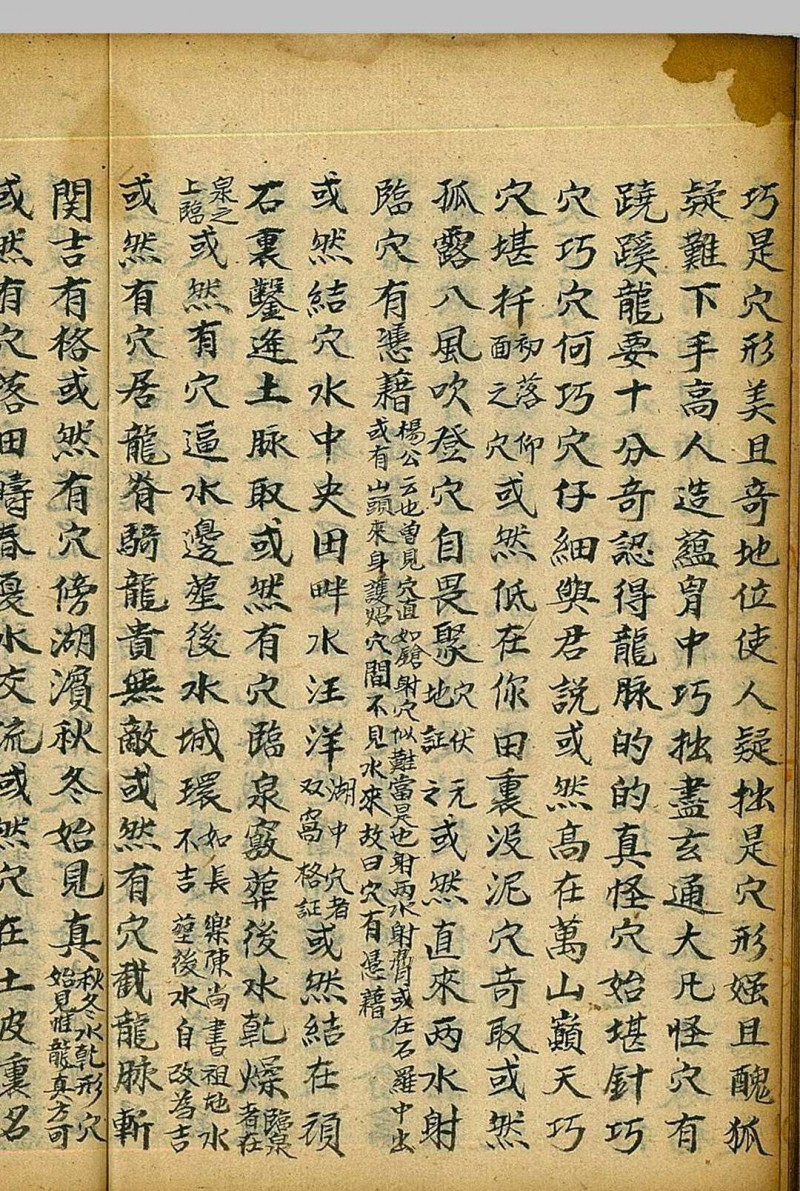 巧是穴形美且奇地位使人疑拙是穴形㛐且醜狐
疑難下手高人造蘊胷中巧拙盡玄通大凡怪穴有
蹺蹊龍要十分奇認得龍脉的的真怪穴始堪針巧
穴巧穴何巧穴仔細與君說或然高在萬山巔天巧
穴堪扦初落仰面之穴或然低在你田裏没泥穴奇取或然
孤露八風吹登穴自畏聚穴伏地証之或然直來兩水射
臨穴有憑藉楊公云也曽見穴直如鎗射穴似難當昊也射兩水射脅或在石羅中出或有山頭來身護始穴間不見水來故曰穴有憑藉
或然結穴水中央田畔水汪洋湖中穴者双窩格証或然結在頑
石裏鑿逢土脉取或然有穴臨泉竅葬後水乾燥臨泉者在
泉之上臨或然有穴逼水邊塟後水城環如長樂陳尚書祖地水不吉塟後水自改為吉
或然有穴居龍脊騎龍貴無敵或然有穴截龍脉斬
関吉有格或然有穴傍湖濵秋冬始見真秋冬水乾形穴始見惟龍真方可
或然有穴落田疇春夏水交流或然穴在土皮裏名